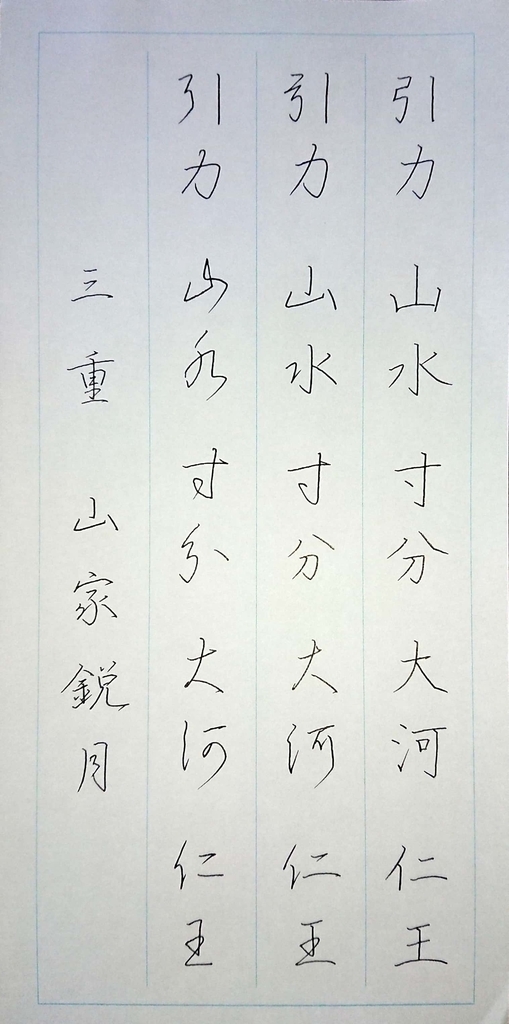 引力 山水 寸分 大河 仁王
引力 山水 寸分 大河 仁王
引力 山水 寸分 大河 仁王
三重 山家鋭月